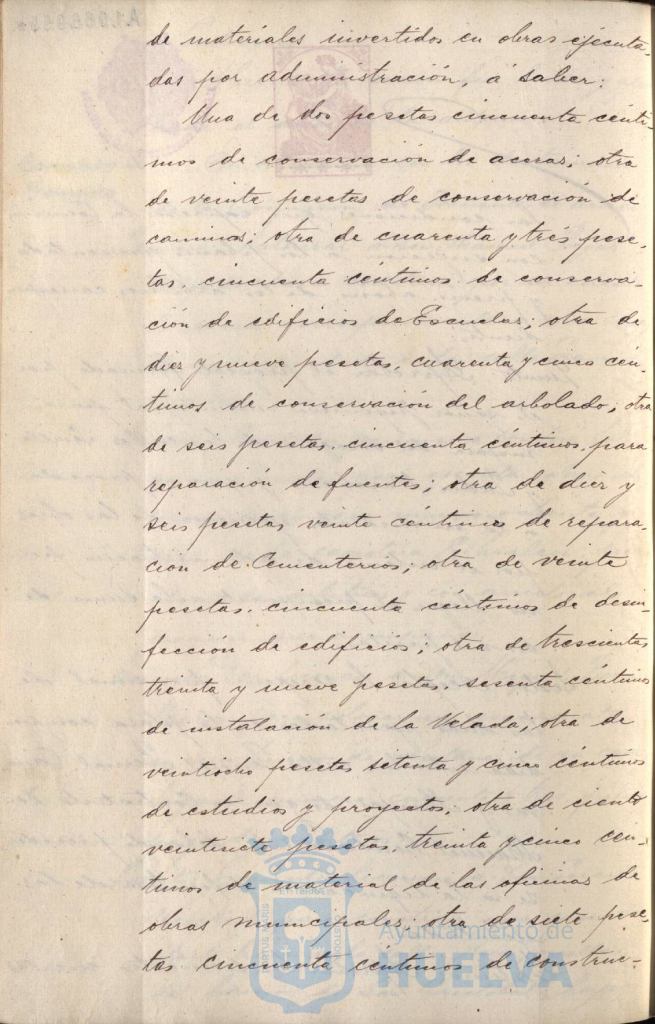 de materiales invertidos en obras ejecuta-
das por administración, á saber:
Una de dos pesetas cincuenta cénti-
mos de conservación de aceras; otra
de veinte pesetas de conservación de
caminos; otra de cuarenta y tres pese-
tas, cincuenta céntimos de conserva-
ción de edificios de Escuelas; otra de
diez y nueve pesetas, cuarenta y cinco cén-
timos de conservación del arbolado; otra
de seis pesetas, cincuenta céntimos, para
reparación de fuentes; otra de diez y
seis pesetas veinte céntimos de repara-
cion de Cementerios; otra de veinte
pesetas, cincuenta céntimos de desin-
fección de edificios; otra de trescientas
treinta y nueve pesetas, sesenta céntimos
de instalación de la Velada; otra de
veintiocho pesetas setenta y cinco céntimos
de estudios y proyectos; otra de ciento
veintisiete pesetas, treinta y cinco cén-
timos de material de las oficinas de
obras municipales; otra de siete pese-
tas cincuenta céntimos de construc-
Ayuntamiento de
HUELVA